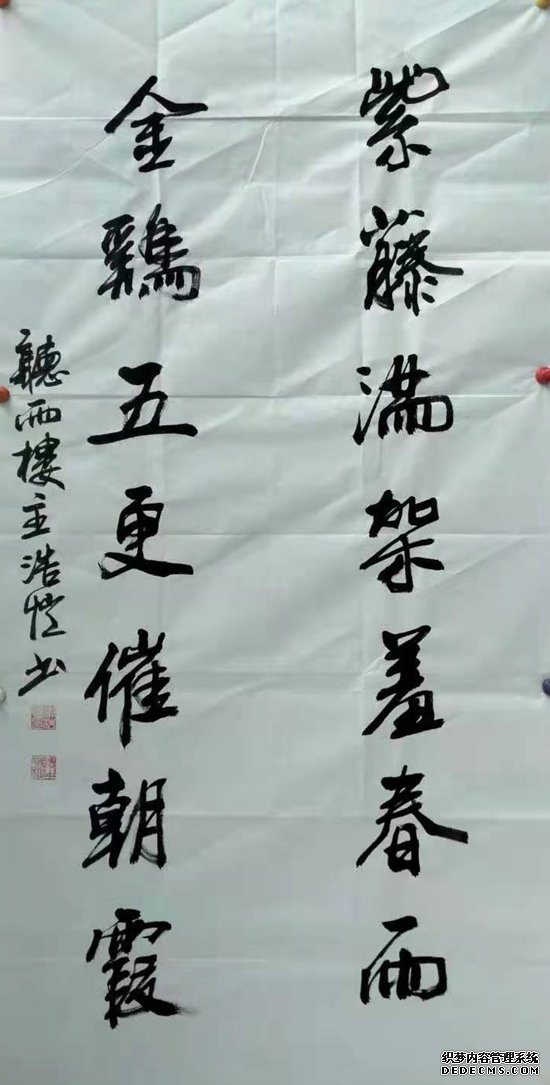 紫藤满架羞春雨
金鷄五更催朝霞
聽雨樓主浩愷书
织梦内容管理系统
DEDECMS.COM